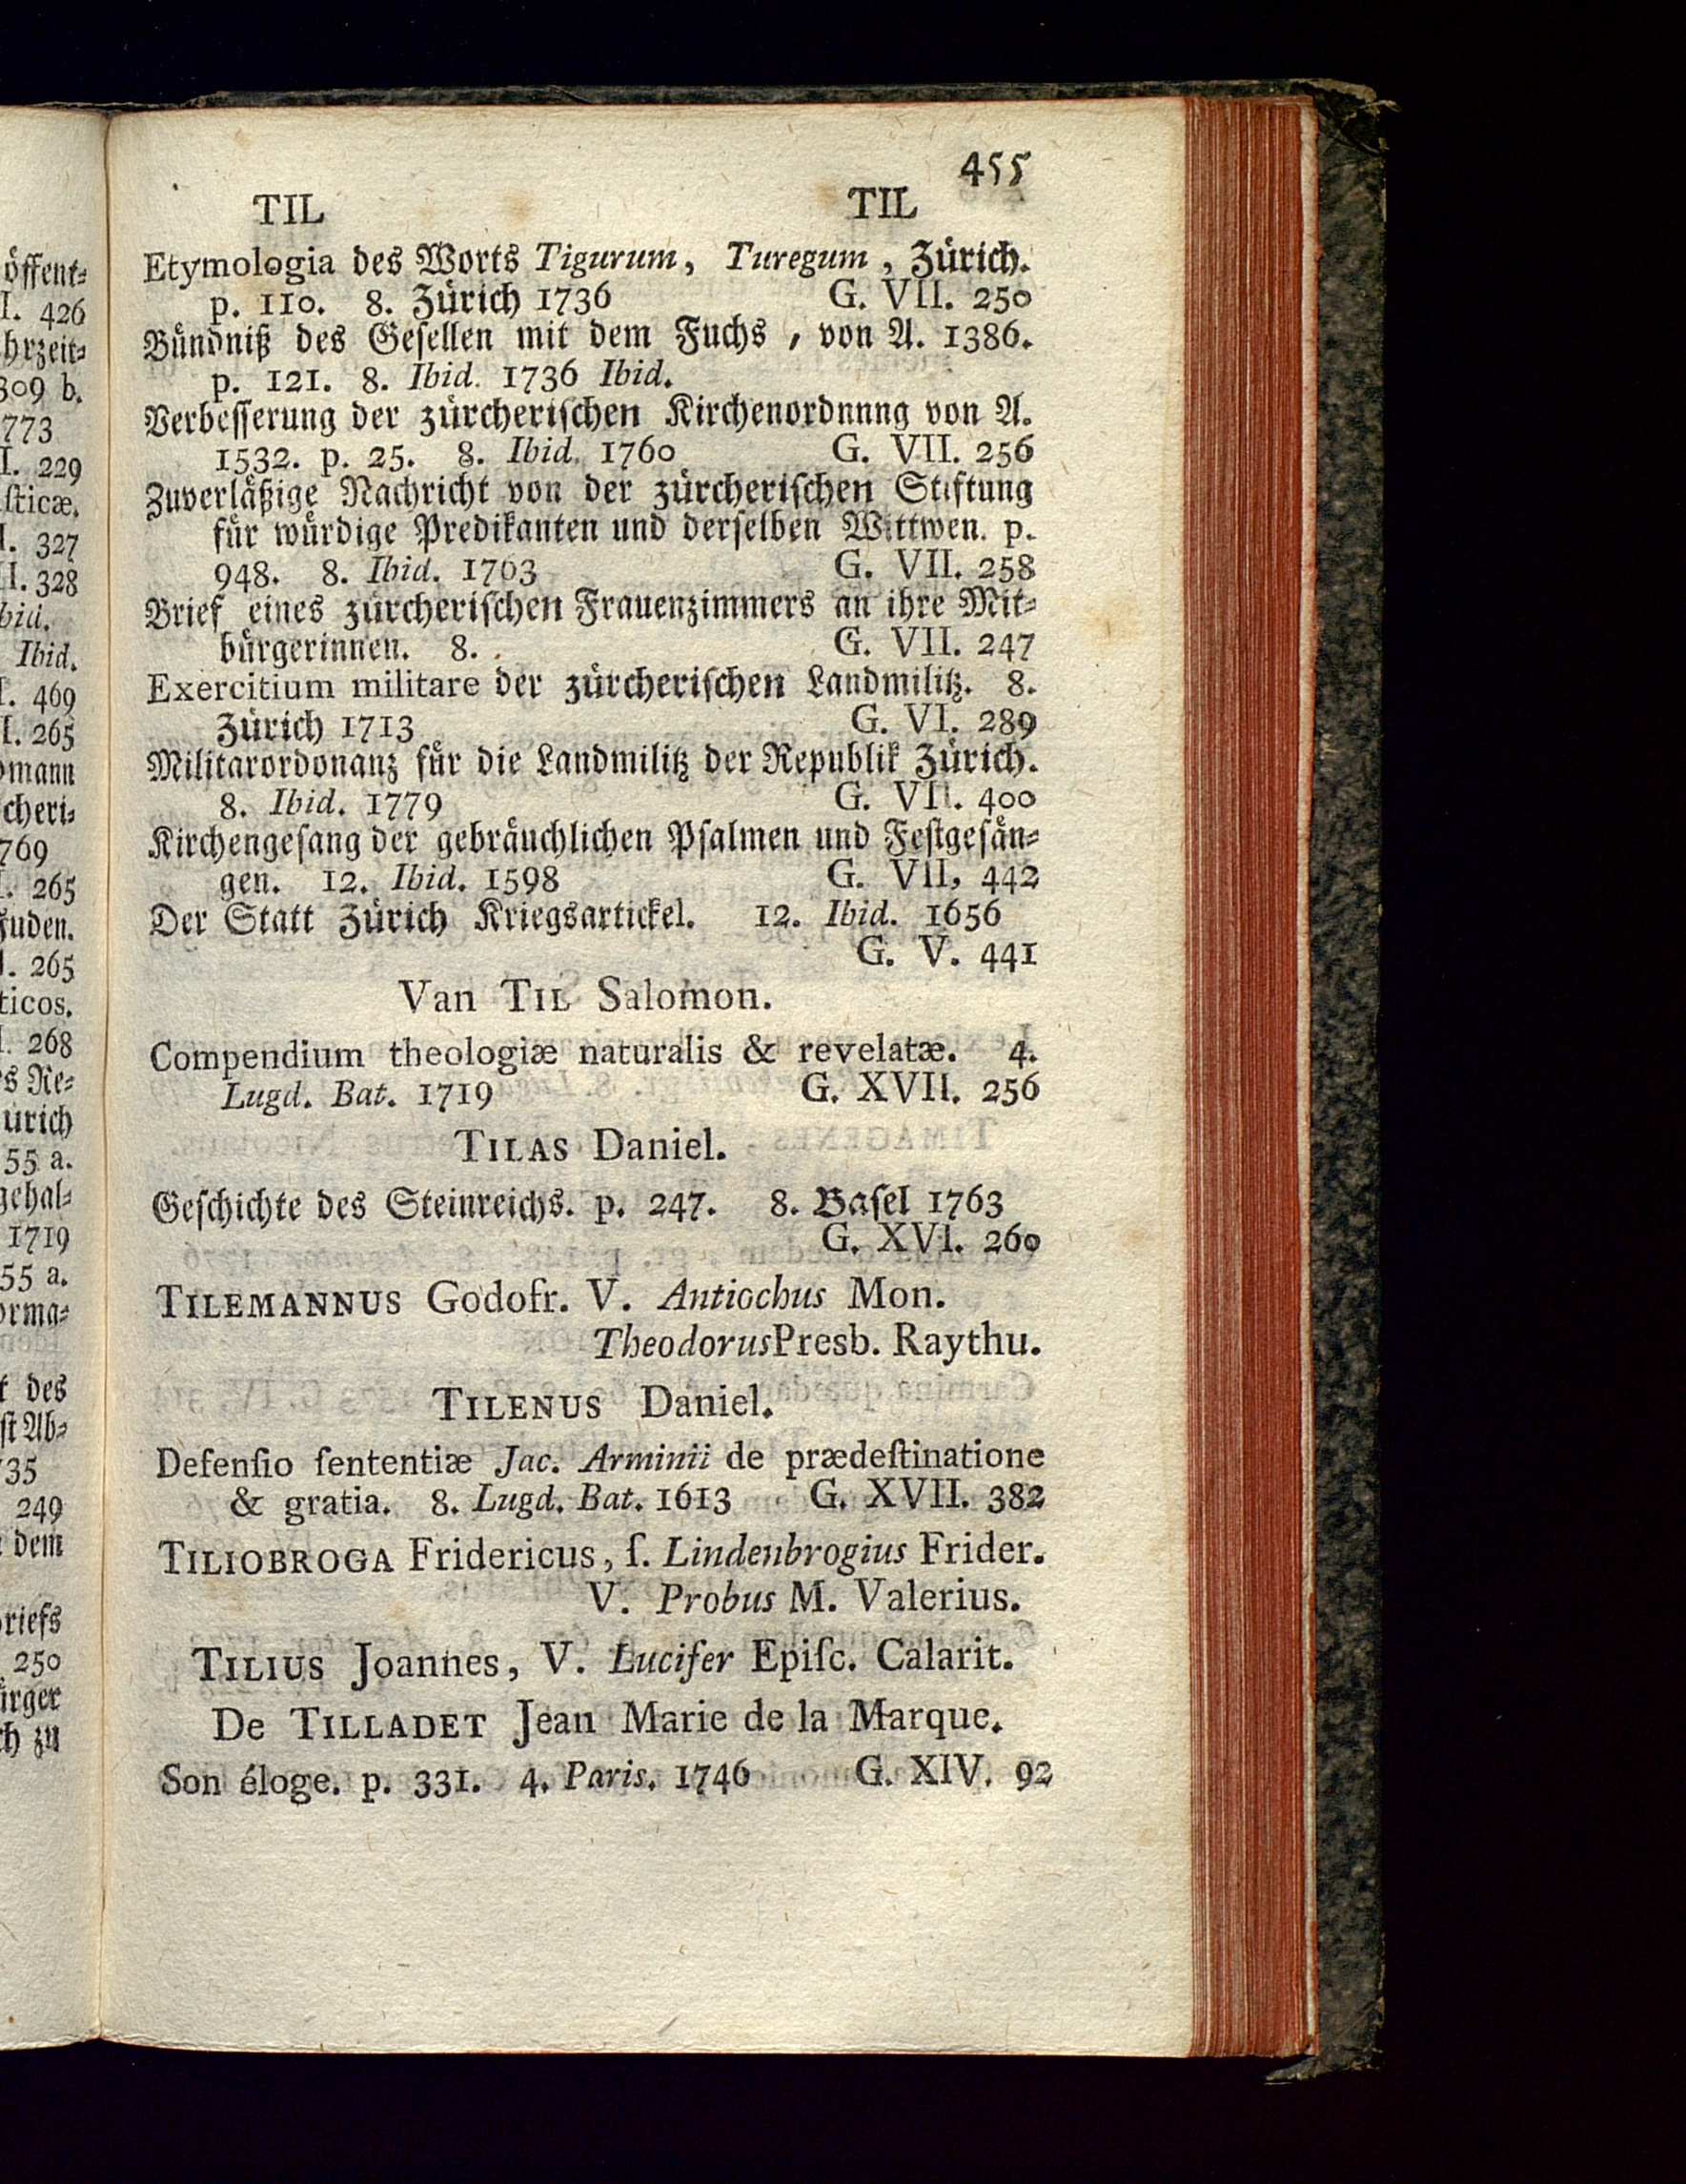 455
TIL TIL
Etymologia des Worts Tigurum, Turegum, Zürich.
p. 110. 8. Zürich 1736 G. VII. 250
Bündniß des Gesellen mit dem Fuchs, von A. 1386.
p. 121. 8. Ibid. 1736 Ibid.
Verbesserung der zürcherischen Kirchenordnnng von A.
1532. p. 25. 8. Ibid. 1760 G. VII. 256
Zuverläßige Nachricht von der zürcherischen Stiftung
für würdige Predikanten und derselben Wittwen. p.
948. 8. Ibid. 1763 G. VII. 258
Brief eines zürcherischen Frauenzimmers an ihre Mit-
bürgerinnen. 8. G. VII. 247
Exercitium militare der zürcherischen Landmilitz. 8.
Zürich 1713 G. VI. 289
Militarordonanz für die Landmilitz der Republik Zürich.
8. Ibid. 1779 G. VII. 400
Kirchengesang der gebräuchlichen Psalmen und Festgesän-
gen. 12. Ibid. 1598 G. VII, 442
Der Statt Zürich Kriegsartickel. 12. Ibid. 1656
G. V. 441
Van TIL Salomon.
Compendium theologiæ naturalis & revelatæ. 4.
Lugd. Bat. 1719 G. XVII. 256
TILAS Daniel.
Geschichte des Steinreichs. p. 247. 8. Basel 1763
G. XVI. 260
TILEMANNUS Godofr. V. Antiochus Mon.
Theodorus Presb. Raythu.
TILENUS Daniel.
Defenſio ſententiæ Jac. Arminii de prædeſtinatione
& gratia. 8. Lugd. Bat. 1613 G. XVII. 382
TILIOBROGA Fridericus, ſ. Lindenbrogius Frider.
V. Probus M. Valerius.
TILIUS Joannes, V. Lucifer Epiſc. Calarit.
De TILLADET Jean Marie de la Marque.
Son éloge. p. 331. 4. Paris. 1746 G. XIV. 92